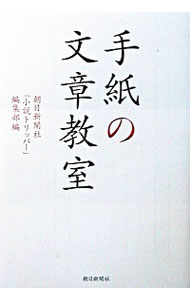 手紙の
文章教室
朝日新聞社
「小説トリッパー」
編集部編
朝日新聞社